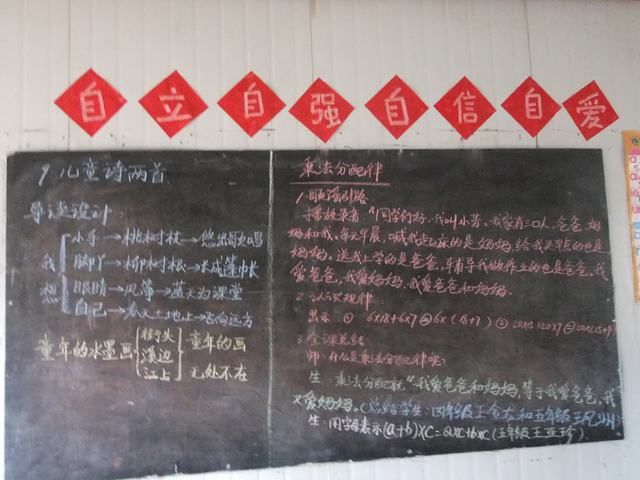 自立自强自信自爱
9.儿童诗两首
导读设计:
我想
小手→桃树枝→悠出歌唱
脚丫→柳树根→长成篷帐
眼睛→风筝→蓝天为课堂
自己→春天土地上→飞向远方
童年的水墨画
街头
溪边
江上
童年的画
无处不在
乘法分配律
1.歌谣引路
播放录音"同学们好,我叫小芳。我家有三口人,爸爸,妈
妈和我。每天早晨,喊我起床的是妈妈,给我买早点的也是
妈妈。送我上学的是爸爸,辅导我做作业的也是爸爸。我
爱爸爸,我爱妈妈,我爱爸爸和妈妈。
2.认识规律:
出示:① 6×18+6×7=6×(18+7) ②
3.全课总结
师:什么是乘法分配律呢?
生:乘法分配就"我爱爸爸和妈妈,等于我爱爸爸,我
又爱妈妈。(总结学生:四年级王 和五年级王
生:用字母表示(a+b)×C=a×c+b×c(五年级王亚珍)